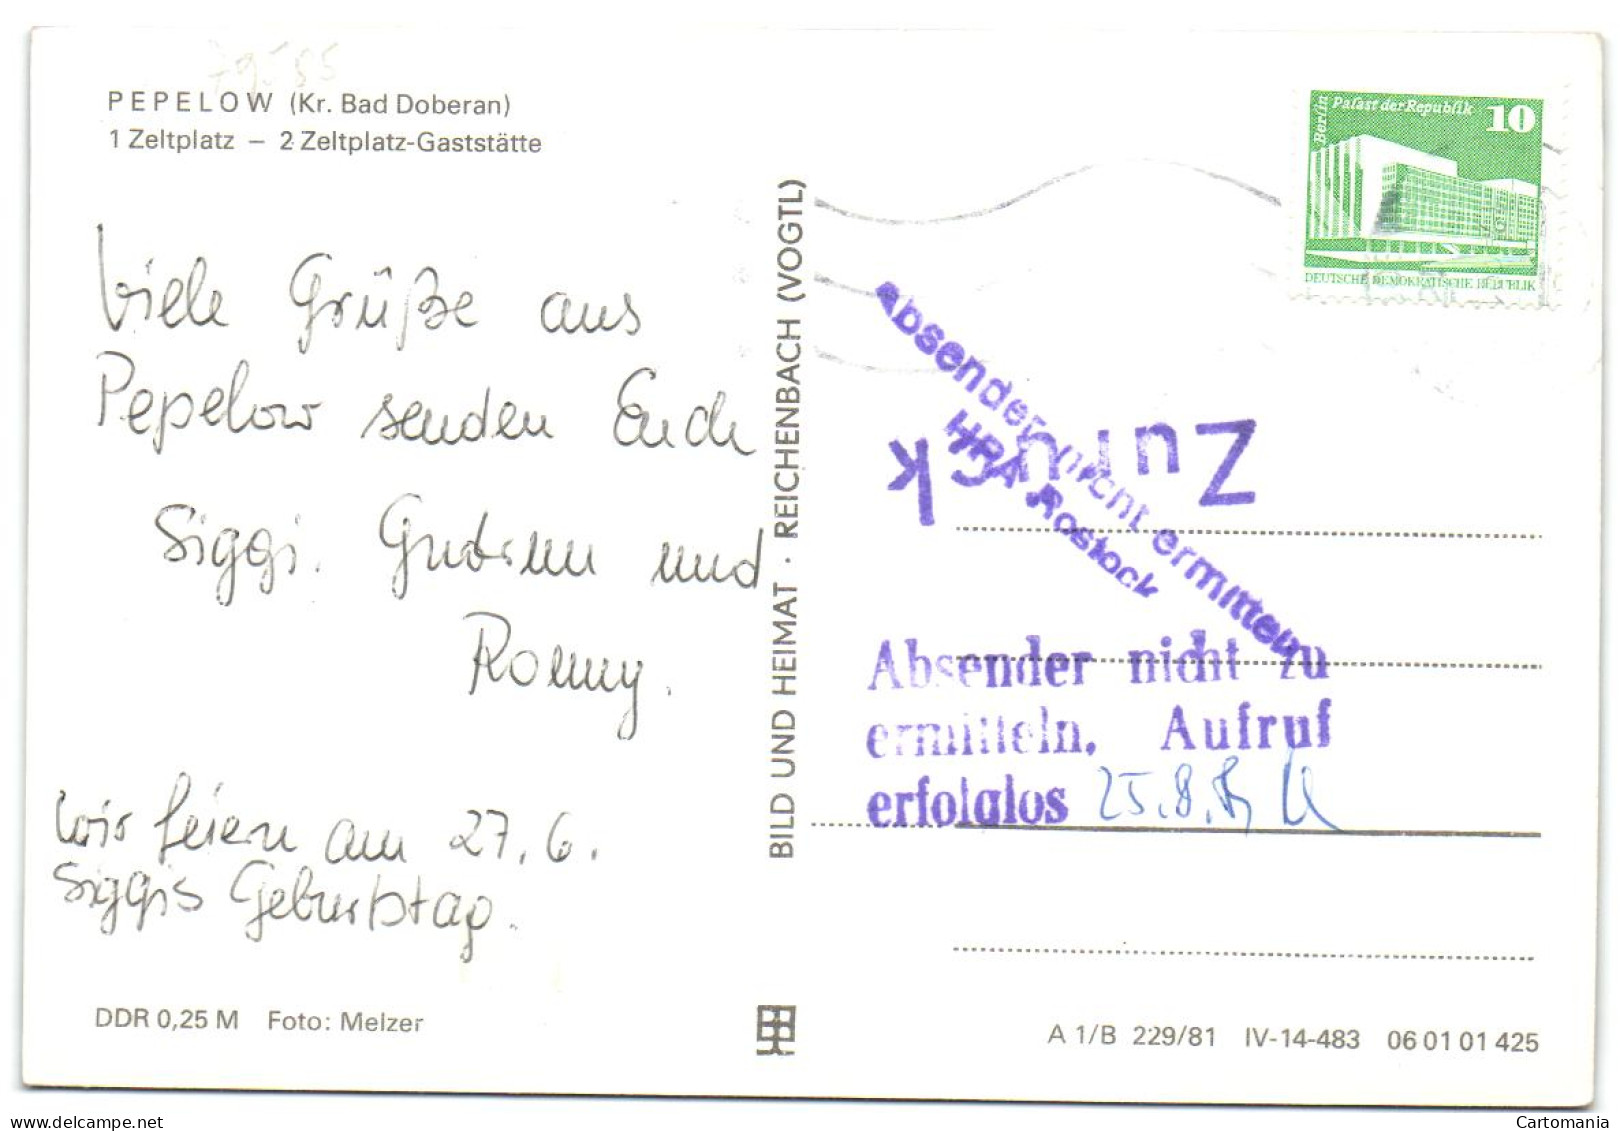 79585
PEPELOW (Kr. Bad Doberan)
1 Zeltplatz – 2 Zeltplatz-Gaststätte
Viele Grüße aus
Pepelow senden Euch
Siggi. Gudrun und
Ronny.
Wir feiern am 27.6.
Siggis Geburtstag.
DDR 0,25 M Foto: Melzer
BILD UND HEIMAT · REICHENBACH (VOGTL)
Berlin
Palast der Republik 10
DEUTSCHE DEMOKRATISCHE REPUBLIK
Absender nicht ermitteln
HPA Rostock
Zurück
Absender nicht zu
ermitteln, Aufruf
erfolglos 25.8.
A 1/B 229/81 IV-14-483 06 01 01 425
delcampe.net
Cartomania